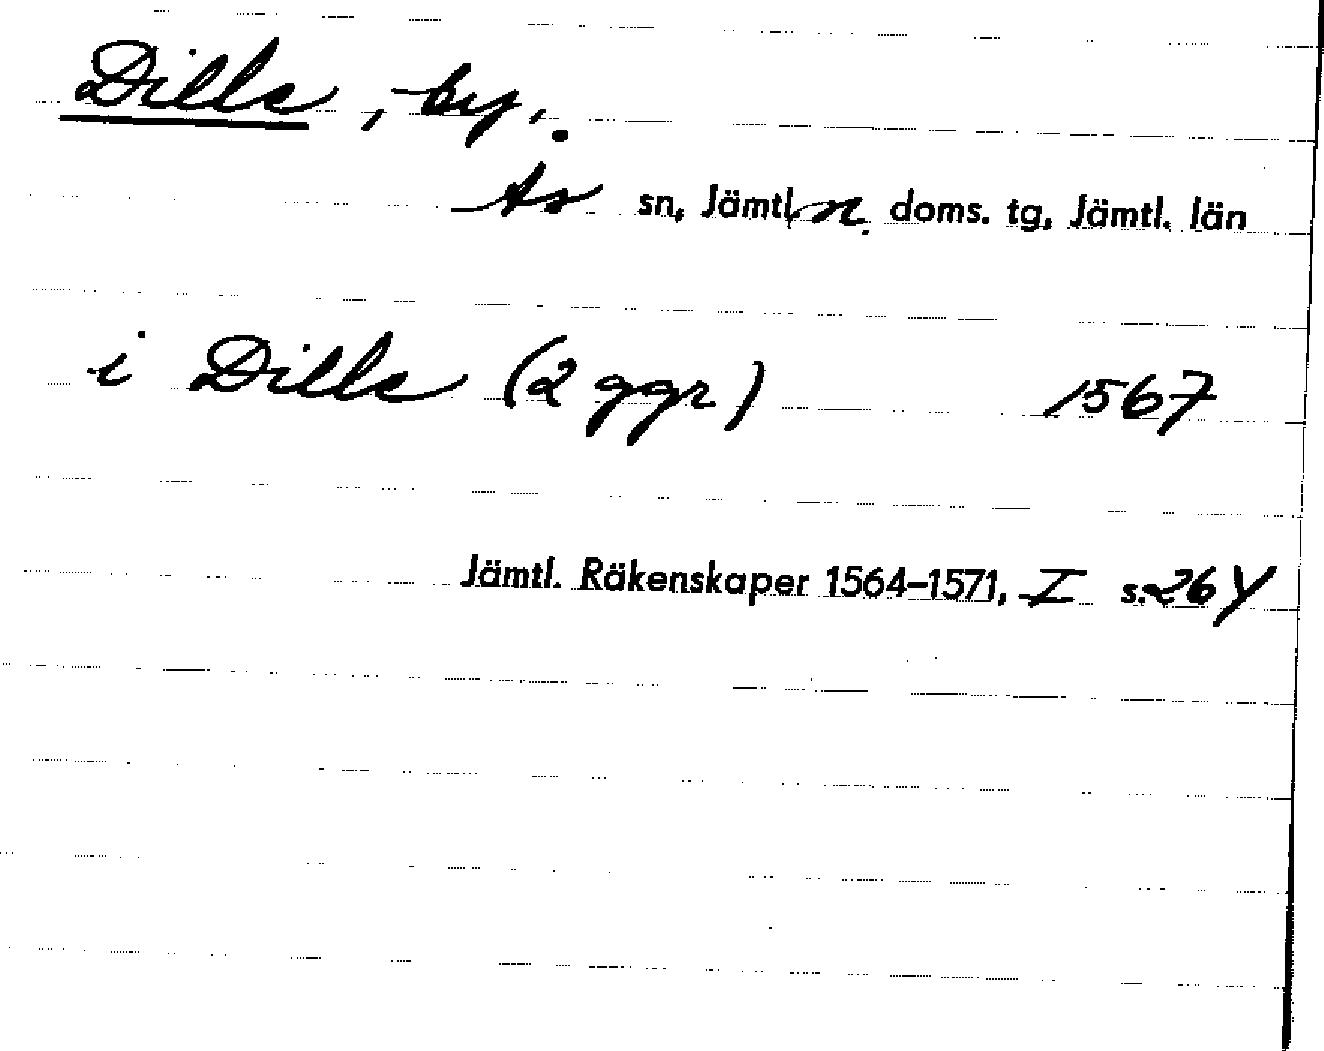 Dille, by.
Ås sn, Jämtl. n. doms. tg, Jämtl. län
i Dille (2 ggr) 1567
Jämtl. Räkenskaper 1564–1571, I s. 264